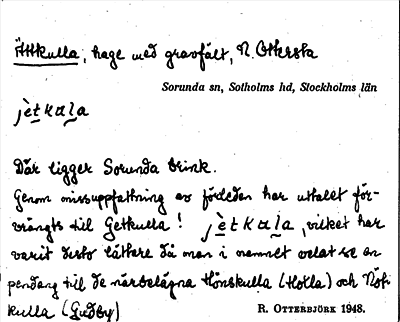 Ättkulla, hage med gravfält, N. Okersta
Sorunda sn, Sotholms hd, Stockholms län
jètkala
Där ligger Sorunda brink.
Genom missuppfattning av förleden har uttalet för-
vrängts till Getkulla! jètkala, vilket har
varit desto lättare då man i namnet velat se en
pendang till de närbelägna Hönskulla (Holla) och
kulla (Gudby)
R. OTTERBJÖRK 1948.